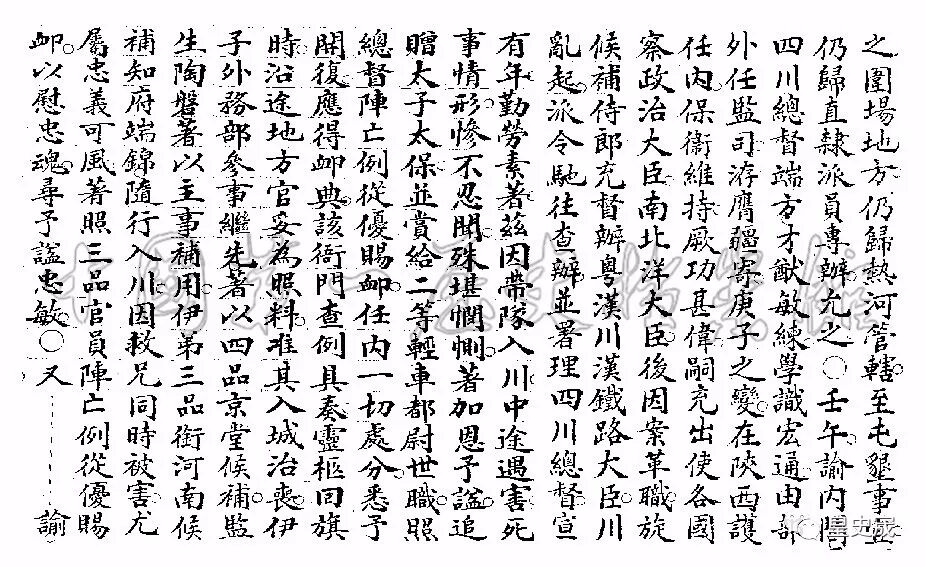 之圍場地方仍歸熱河管轄至屯墾事宜
仍歸直隸派員專辦允之〇壬午諭內閣
四川總督端方才猷敏練學識宏通由部
外任監司洊膺疆寄庚子之變在陝西護
任內保衞維持厥功甚偉嗣充出使各國
察政治大臣南北洋大臣後因案革職旋
候補侍郎充督辦粵漢川漢鐵路大臣川
亂起派令馳往查辦並署理四川總督宣
有年勤勞素著茲因帶隊入川中途遇害死
事情形慘不忍聞殊堪憫惻著加恩予諡追
贈太子太保並賞給二等輕車都尉世職照
總督陣亡例從優賜卹任內一切處分悉予
開復應得卹典該衙門查例具奏靈柩回旗
時沿途地方官妥為照料准其入城治喪伊
子外務部參事繼先著以四品京堂候補監
生陶磐著以主事補用伊弟三品銜河南候
補知府端錦隨行入川因救兄同時被害尤
屬忠義可風著照三品官員陣亡例從優賜
卹以慰忠魂尋予諡忠敏〇又諭
中國第一歷史檔案館
皇史宬